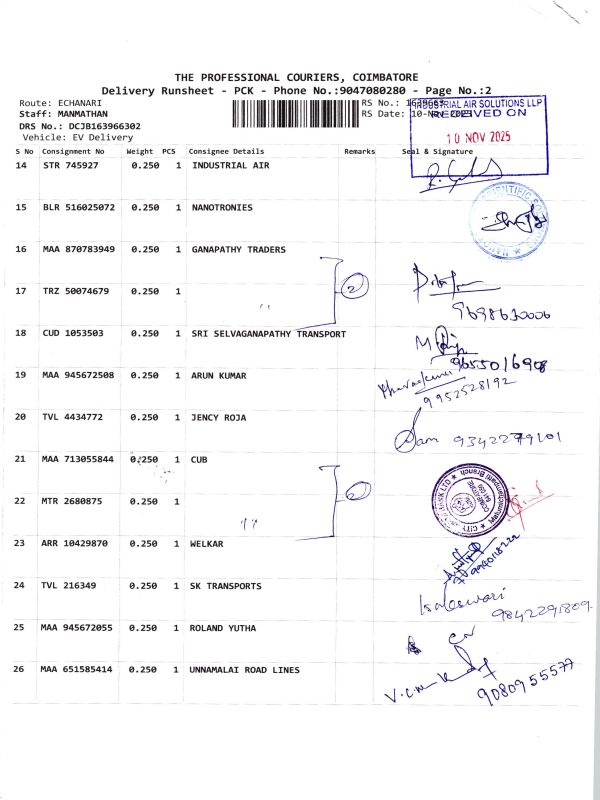 THE PROFESSIONAL COURIERS, COIMBATORE
Delivery Runsheet - PCK - Phone No.:9047080280 - Page No.:2
Route: ECHANARI RS No.:
Staff: MANMATHAN RS Date: 10-Nov-2025
DRS No.: DCJB163966302
Vehicle: EV Delivery
INDUSTRIAL AIR SOLUTIONS LLP
RECEIVED ON
10 NOV 2025
S No Consignment No Weight PCS Consignee Details Remarks Seal & Signature
14 STR 745927 0.250 1 INDUSTRIAL AIR
15 BLR 516025072 0.250 1 NANOTRONIES
16 MAA 870783949 0.250 1 GANAPATHY TRADERS
2
17 TRZ 50074679 0.250 1 ,,
9698630006
18 CUD 1053503 0.250 1 SRI SELVAGANAPATHY TRANSPORT
9655016908
19 MAA 945672508 0.250 1 ARUN KUMAR
9952528192
20 TVL 4434772 0.250 1 JENCY ROJA
Sam 9342279101
21 MAA 713055844 0.250 1 CUB
2
22 MTR 2680875 0.250 1 ,,
23 ARR 10429870 0.250 1 WELKAR
24 TVL 216349 0.250 1 SK TRANSPORTS
9842291809
25 MAA 945672055 0.250 1 ROLAND YUTHA
26 MAA 651585414 0.250 1 UNNAMALAI ROAD LINES
9080955577